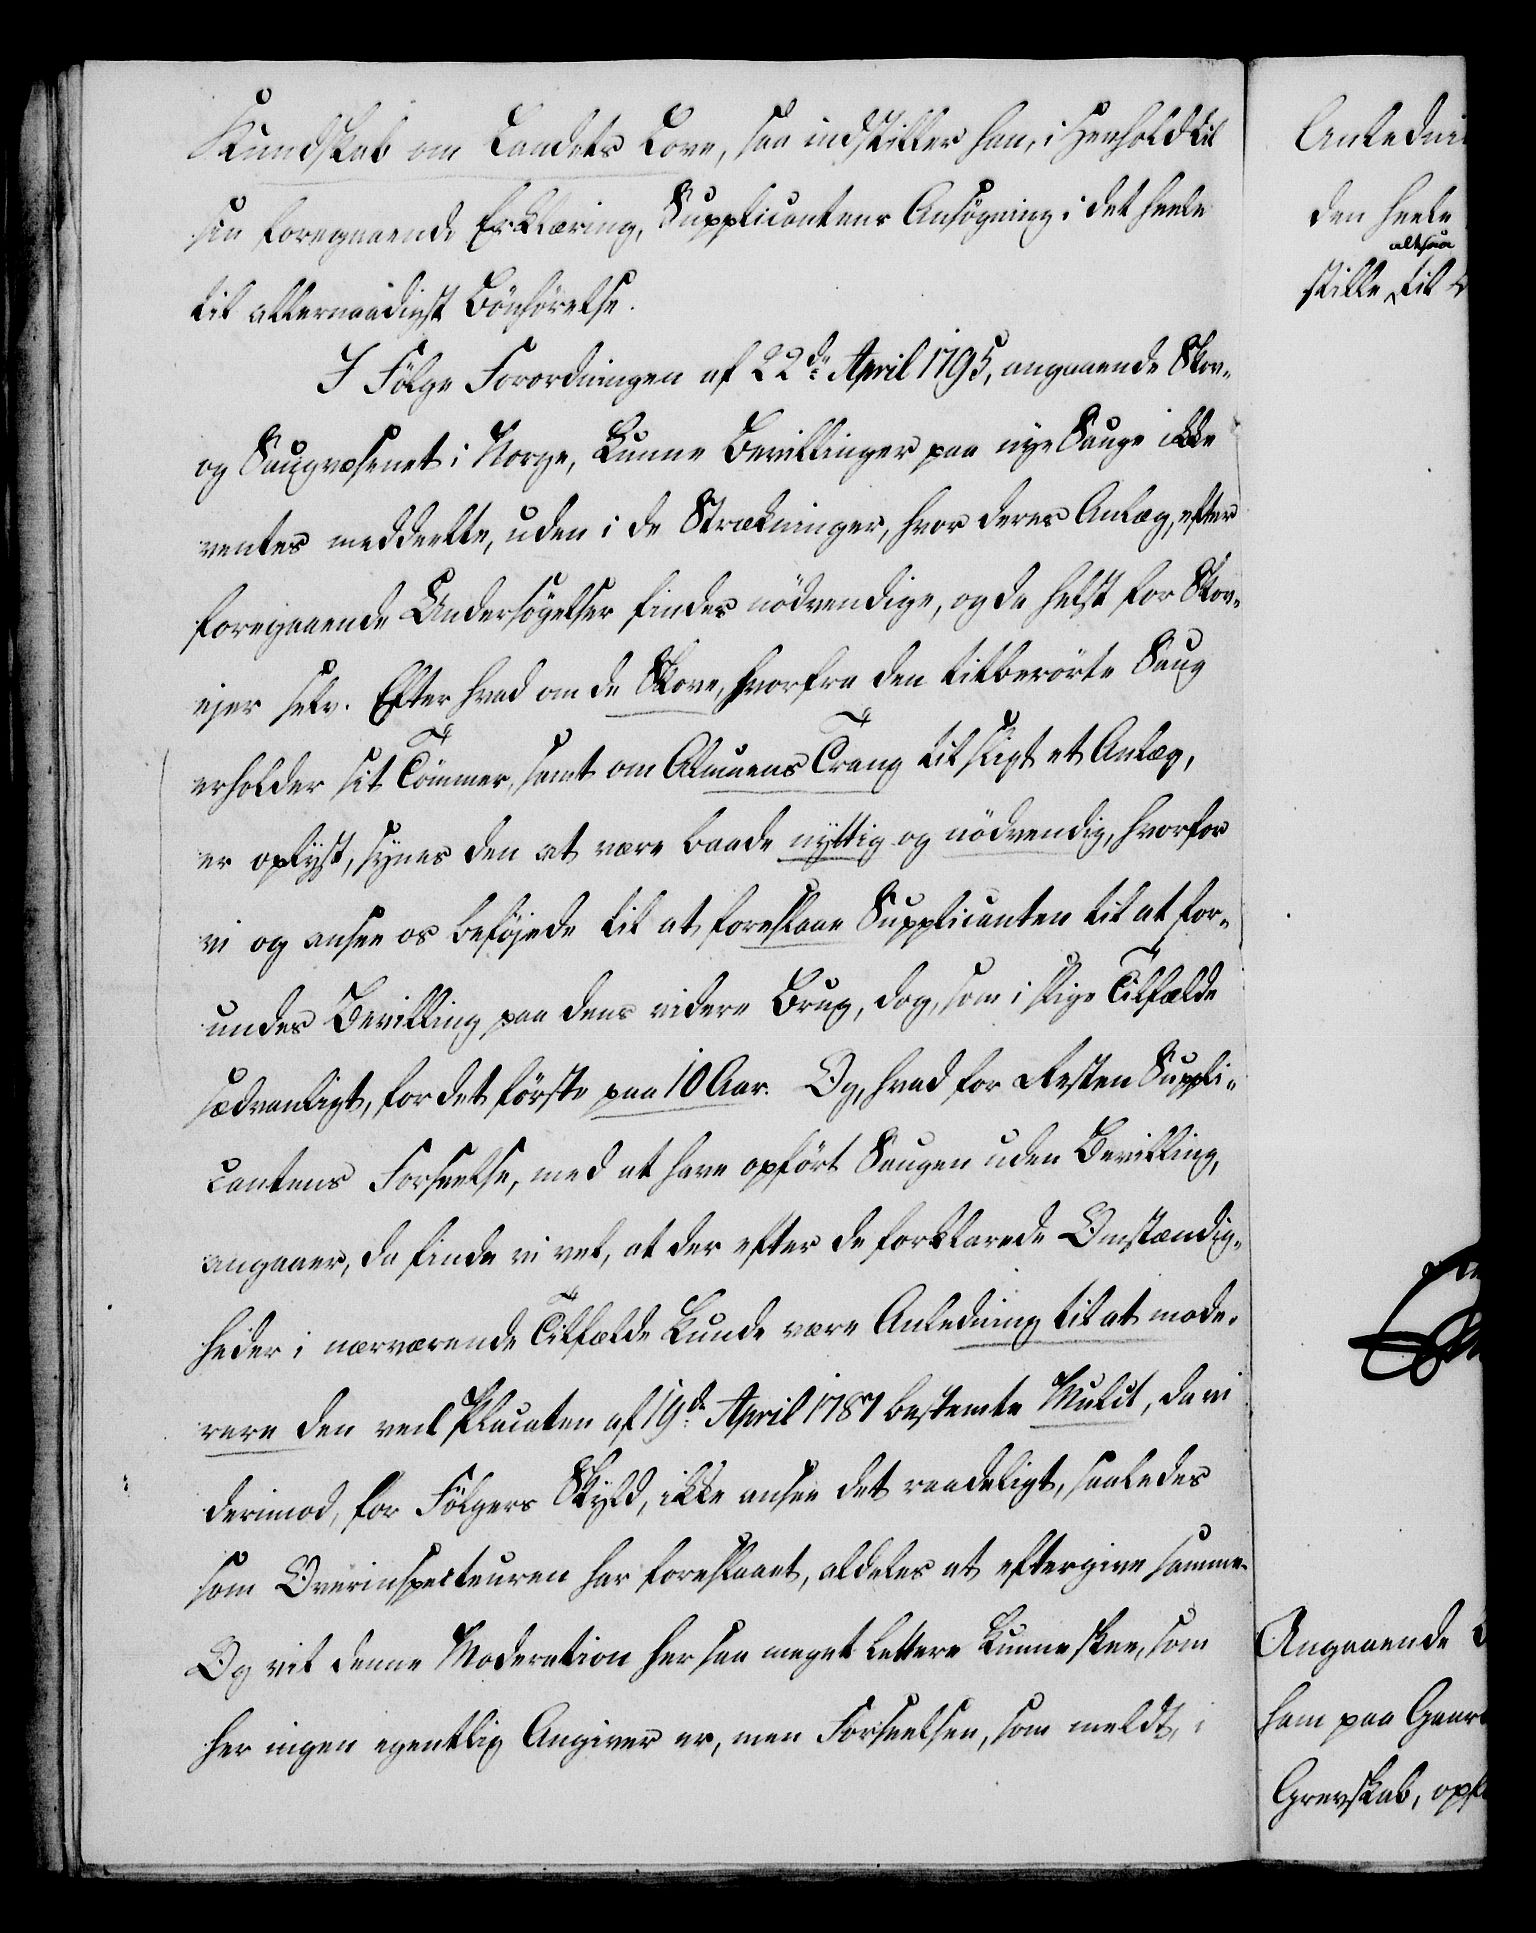 Kundskab om Landets Love, saa indstiller han, i Henhold til
sin foregaaende Erklæring, Supplicantens Ansøgning i det heele
til allernaadigst Bönhörelse.
I Fölge Forordningen af 22de April 1795, angaaende Skov-
og Saugvæsenet i Norge, kunne Bevillinger paa nye Sauge ikke
ventes meddeelte, uden i de Strækninger, hvor deres Anlæg, efter
foregaaende Undersögelser findes nödvendige, og da helst for Skov-
ejer selv. Efter hvad om de Skove, hvorfra den titberörte Saug
erholder sit Tömmer, samt om Almuens Trang til sligt et Anlæg,
er oplyst, synes den at være baade nyttig og nödvendig, hvorfor
vi og ansee os beföjede til at foreslaae Supplicanten til at for-
undes Bevilling paa dens videre Brug, dog, som i slige Tilfælde
sædvanligt, for det förste paa 10 Aar. Og, hvad for Resten Suppli-
cantens Forseelse, med at have opfört Saugen uden Bevilling,
angaaer, da finde vi vel, at der efter de forklarede Omstændig-
heder i nærværende Tilfælde kunde være Anledning til at mode-
rere den ved Placaten af 19de April 1787 bestemte Mulct, da vi
derimod, for Fölgers Skyld, ikke ansee det raadeligt, saaledes
som Overinspecteuren har foreslaaet, aldeles at eftergive samme.
Og vil denne Moderation her saa meget lettere kunne skee, som
her ingen egentlig Angiver er, men Forseelsen, som meldt, i
Anledni
den heele
altsaa
stille til
Angaaende
ham paa Gaar
Grevskab, opf